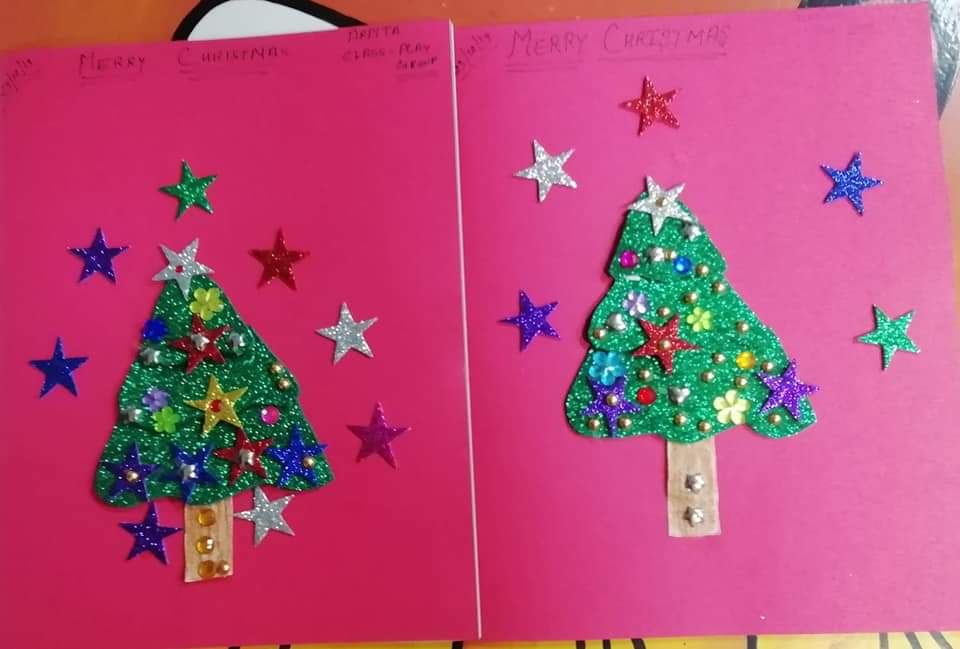 MERRY CHRISTMAS
ARPITA
CLASS - PLAY
GROUP
MERRY CHRISTMAS